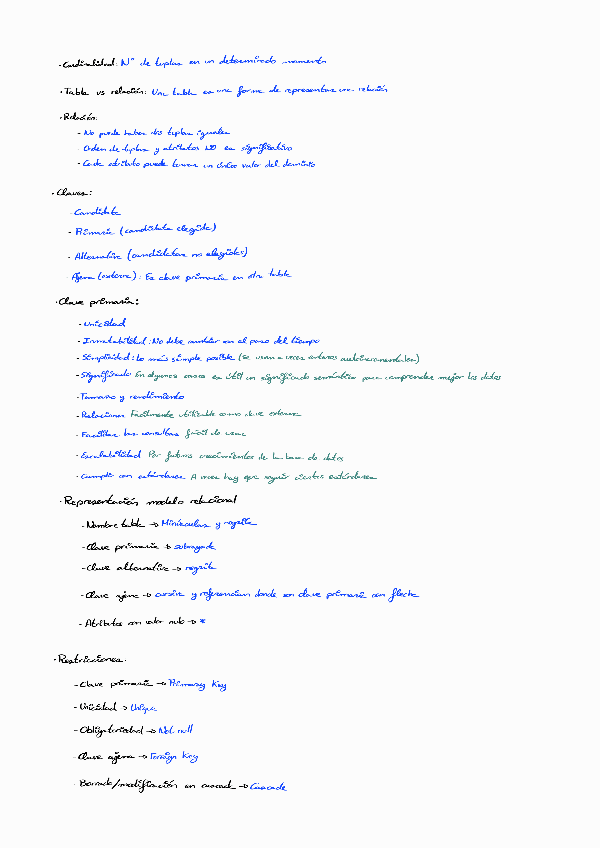 · Cardinalidad: Nº de tuplas en un determinado momento
· Tabla vs relación: Una tabla es una forma de representar una relación
· Relación:
- No puede haber dos tuplas iguales
- Orden de tuplas y atributos NO es significativo
- Cada atributo puede tomar un único valor del dominio
· Claves:
- Candidata
- Primaria (candidata elegida)
- Alternativa (candidatas no elegidas)
Ajena (externa): Es clave primaria en otra tabla
· Clave primaria:
- Unicidad
- Inmutabilidad: No debe cambiar con el paso del tiempo
- Simplicidad: Lo más simple posible (se usan a veces enteros autoincrementales)
- Significado En algunos casos es útil un significado semántico para comprender mejor los datos
- Tamaño y rendimiento
- Relaciones Fácilmente utilizable como clave externa
- Facilitar las consultas fácil de usar
- Escalabilidad Por futuros crecimientos de la base de datos
- Cumplir con estándares A veces hay que seguir ciertos estándares
· Representación modelo relacional
- Nombre tabla → Minúsculas y negrilla
- Clave primaria → subrayada
- Clave alternativa → negrita
- Clave ajena → cursiva y referencian donde son clave primaria con flecha
- Atributos con valor nulo → *
· Restricciones:
- Clave primaria → Primary Key
- Unicidad → Unique
- Obligatoriedad → Not null
- Clave ajena → Foreign Key
- Borrado/modificación en cascada → Cascade